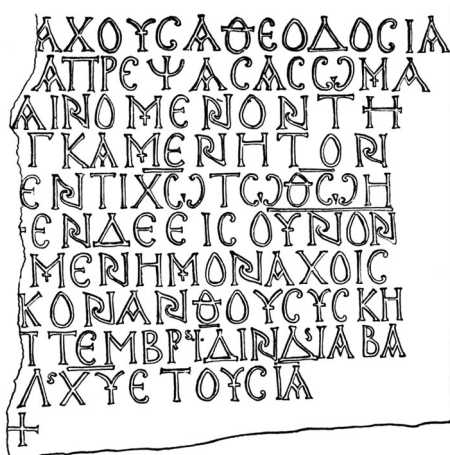 ΑΧΟΥϹΑΘΕΟΔΟϹΙΑ
ΑΠΡΕΨΑϹΑϹϹωΜΑ
ΑΙΝΟΜΕΝΟΝΤΗ
ΓΚΑΜΕΝΗΤΟΝ
ΕΝΤΙΧωΤωΘωΗ
ΕΝΔΕΕΙϹΟΥΝΟΝ
ΜΕΝΗΜΟΝΑΧΟΙϹ
ΚΟΝΑΝΘΟΥϹΥϹΚΗ
ΠΤΕΜΒΡˢΙΔΙΝΔˢΙΑΒΑ
ΛˢΧΥΕΤΟΥϹΙΑ
+